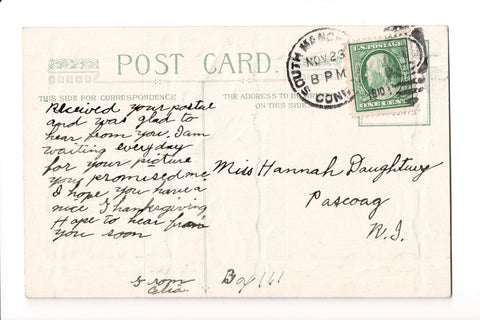 POST CARD
THIS SIDE FOR CORRESPONDENCE
THE ADDRESS TO BE
ON THIS SIDE
SOUTH MANC
NOV 23
8 PM
CONN
U.S. POSTAGE
ONE CENT
Received your postal
and was glad to
hear from you. I am
waiting everyday
for your picture
you promised me
I hope you have a
nice Thanksgiving
Hope to hear from
you soon
From
Celia
Miss Hannah Daughtwy
Pascoag
R.I.
Box 111